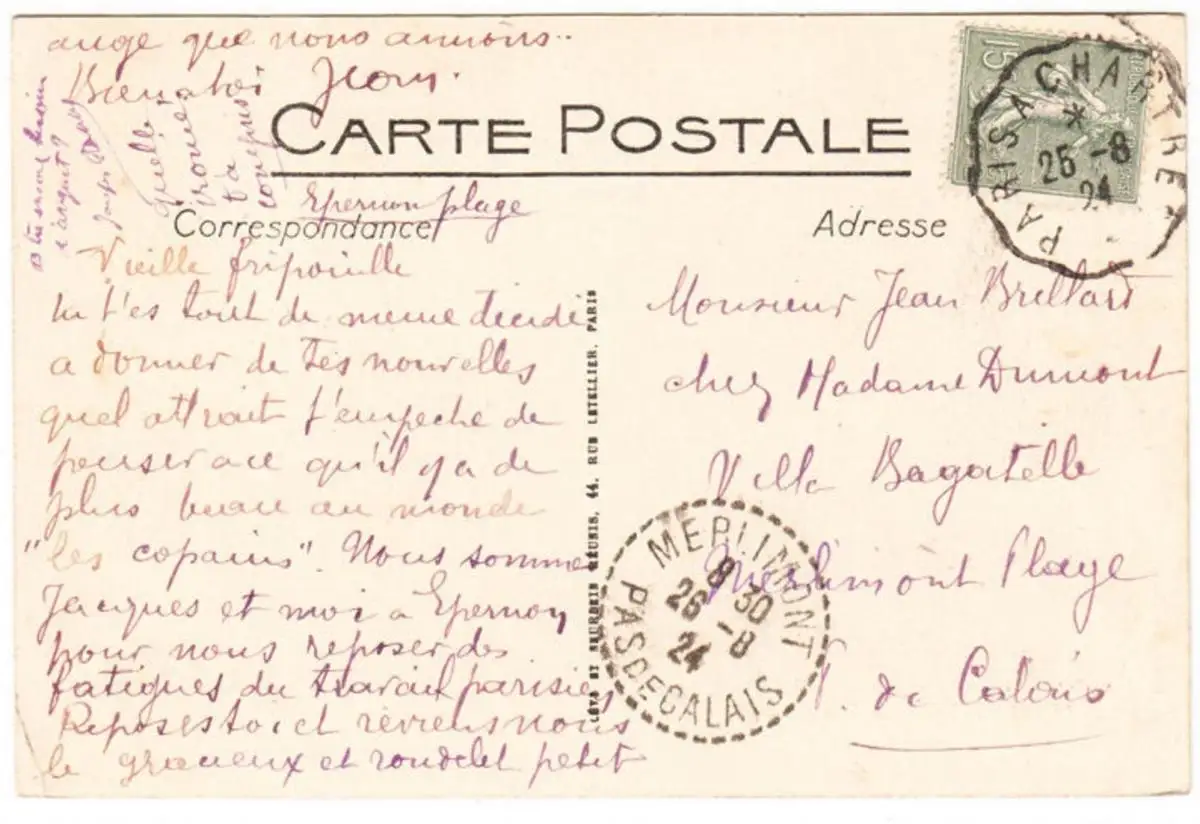 ange que nous aimions..
Bientôt Jean.
quelle
ironie
t'a
conquis
CARTE POSTALE
Epernon plage
Correspondance
Adresse
Vieille fripouille
tu t'es tout de meme décidé
a donner de tes nouvelles
quel attrait t'empeche de
penser a ce qu'il y a de
plus beau au monde
"les copains". Nous sommes
Jacques et moi a Epernon
pour nous reposer des
fatigues du travail parisien
Reposes toi et reviens nous
le gracieux et rondelet petit
LÉVY ET NEURDEIN RÉUNIS, 44, RUE LETELLIER, PARIS
Monsieur Jean Brillard
chez Madame Dumont
Villa Bagatelle
Merlimont Plage
P. de Calais
15c
PARIS A CHARTRES
*
25 -8
24
MERLIMONT
8 30
26 -8
24
PAS DE CALAIS